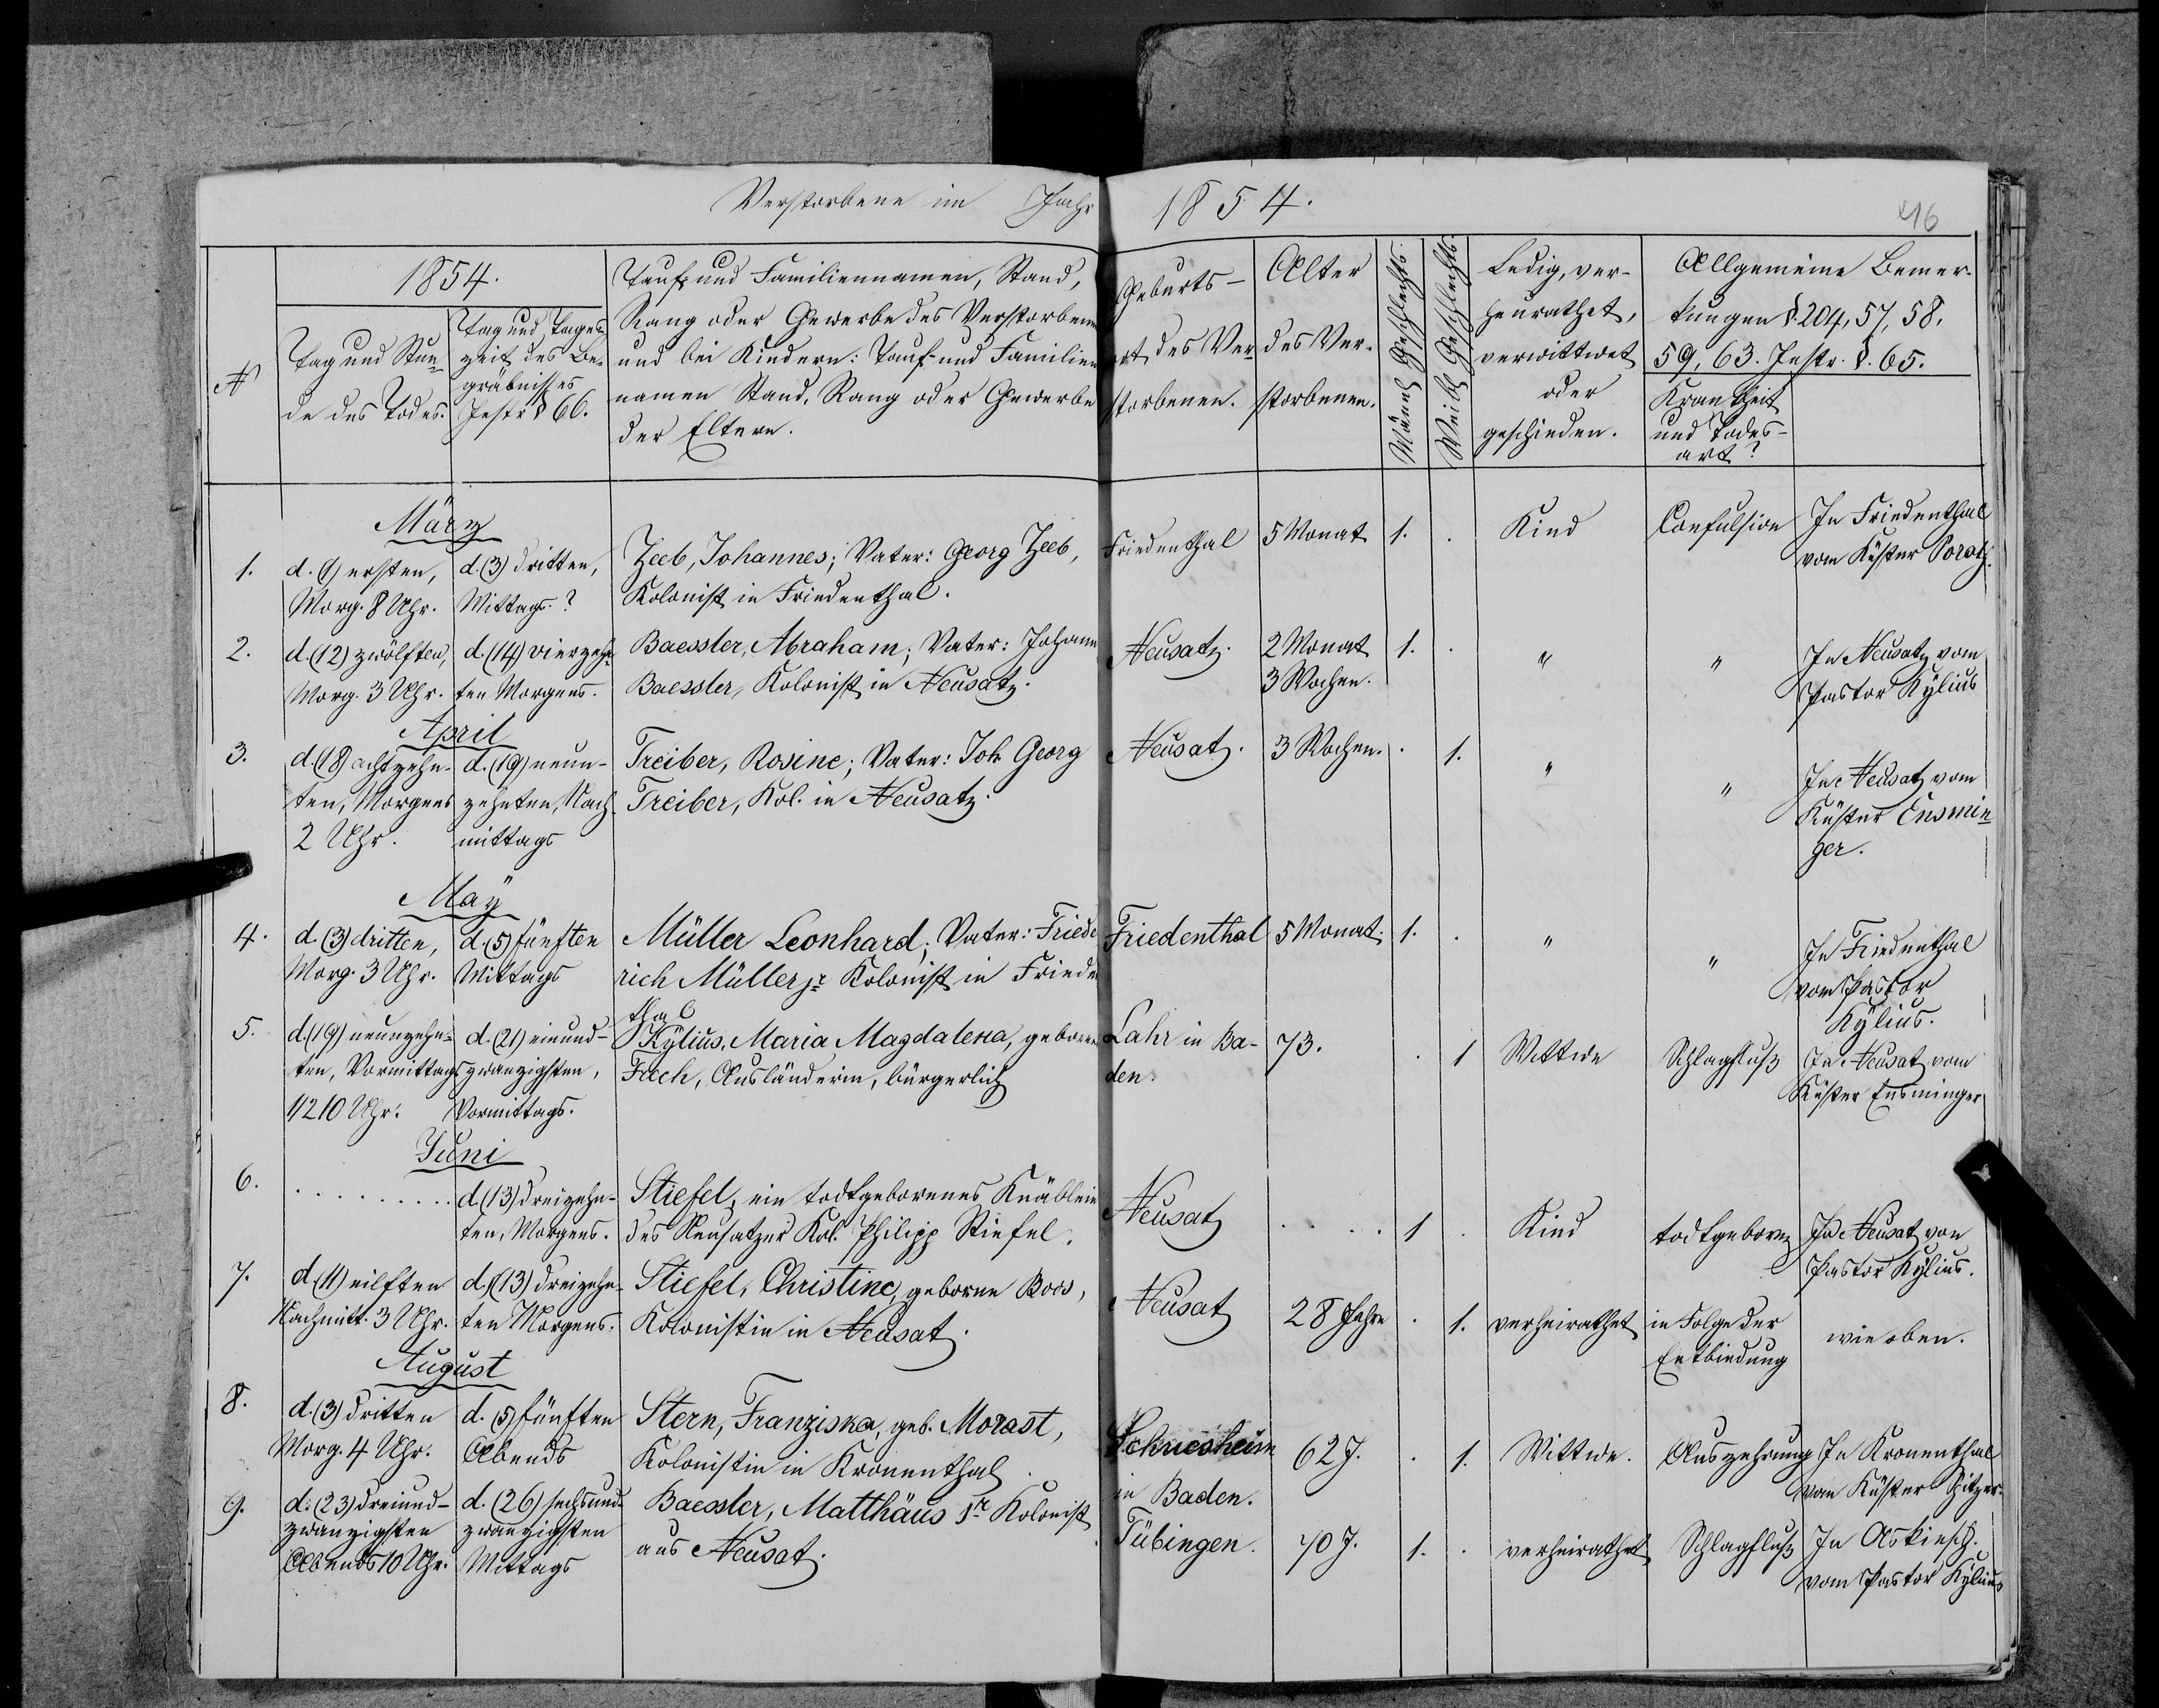 Verstorbene im Jahr 1854.
416
N
1854.
Tag und Stun-
de des Todes.
Tag und Tages-
zeit des Be-
gräbnisses
Instr § 66.
Tauf- und Familiennamen, Stand,
Rang oder Gewerbe des Verstorbenen
und bei Kindern: Tauf- und Familien
namen Stand, Rang oder Gewerbe
der Eltern.
Geburts-
ort des Ver-
storbenen.
Alter
des Ver-
storbenen.
Männl. Geschlechts.
Weibl. Geschlechts.
Ledig, ver-
heurathet,
verwittwet
oder
geschieden.
Allgemeine Bemer-
kungen §.204, 57, 58,
59, 63. Instr. §. 65.
Krankheit
und Todes-
art?
März
1.
d. (1) ersten,
Morg. 8 Uhr.
d. (3) dritten,
Mittags.?
Zeeb, Johannes; Vater: Georg Zeeb,
Kolonist in Friedenthal.
Friedenthal
5 Monat
1.
.
Kind
Confulsion
In Friedenthal
vom Küster Porath.
2.
d. (12) zwölften,
Morg. 3 Uhr.
d. (14) vierzehn-
ten Morgens.
Baessler, Abraham; Vater: Johann
Baessler, Kolonist in Neusatz.
Neusatz.
2 Monat
3 Wochen.
1.
.
"
"
In Neusatz vom
Pastor Kÿlius
April
3.
d. (18) achtzehn-
ten, Morgens
2 Uhr.
d. (19) neun-
zehnten, Nach-
mittags
Treiber, Rosine; Vater: Joh Georg
Treiber, Kol. in Neusatz.
Neusatz.
3 Wochen.
.
1.
"
"
In Neusatz vom
Küster Ensmin
ger.
Maÿ
4.
d. (3) dritten,
Morg. 3 Uhr.
d. (5) fünften
Mittags
Müller Leonhard; Vater: Friede
rich Müller jr Kolonist in Frieden
thal
Friedenthal
5 Monat.
1.
.
"
"
In Friedenthal
vom Pastor
Kÿlius.
5.
d. (19) neunzehn-
ten, Vormittags
1/2 10 Uhr.
d. (21) einund-
zwanzigsten,
Vormittags.
Kÿlius, Maria Magdalena, geborene
Fech, Ausländerin, bürgerlich
Lahr in Ba-
den.
73.
.
1
Wittwe
Schlagfluß
In Neusatz vom
Küster Ensminger
Juni
6.
. . . . . . . . .
d (13) dreizehn-
ten, Morgens.
Stiefel, ein todtgeborenes Knäblein
des Neusatzer Kol. Philipp Stiefel.
Neusatz
. . . .
1
.
Kind
todtgeboren
In Neusatz von
Pastor Kÿlius.
7.
d (11) eilften
Nachmitt. 3 Uhr.
d. (13) dreizehn-
ten Morgens.
Stiefel, Christine, geborne Boos,
Kolonistin in Neusatz.
Neusatz
28 Jahre
.
1.
verheirathet
in Folge der
Entbindung
wie oben.
August
8.
d. (3) dritten
Morg. 4 Uhr.
d. (5) fünften
Abends
Stern, Franziska, geb. Morast,
Kolonistin in Kronenthal.
Schriesheim
in Baden.
62 J.
.
1.
Wittwe.
Auszehrung
In Kronenthal
vom Küster Spitzer.
9.
d: (23) dreiund-
zwanzigsten
Abends 10 Uhr.
d. (26) sechsund-
zwanzigsten
Mittags
Baessler, Matthäus Sr Kolonist
aus Neusatz.
Tübingen.
70 J.
1.
.
verheirathet
Schlagfluß
In Askinsch.
vom Pastor Kÿlius